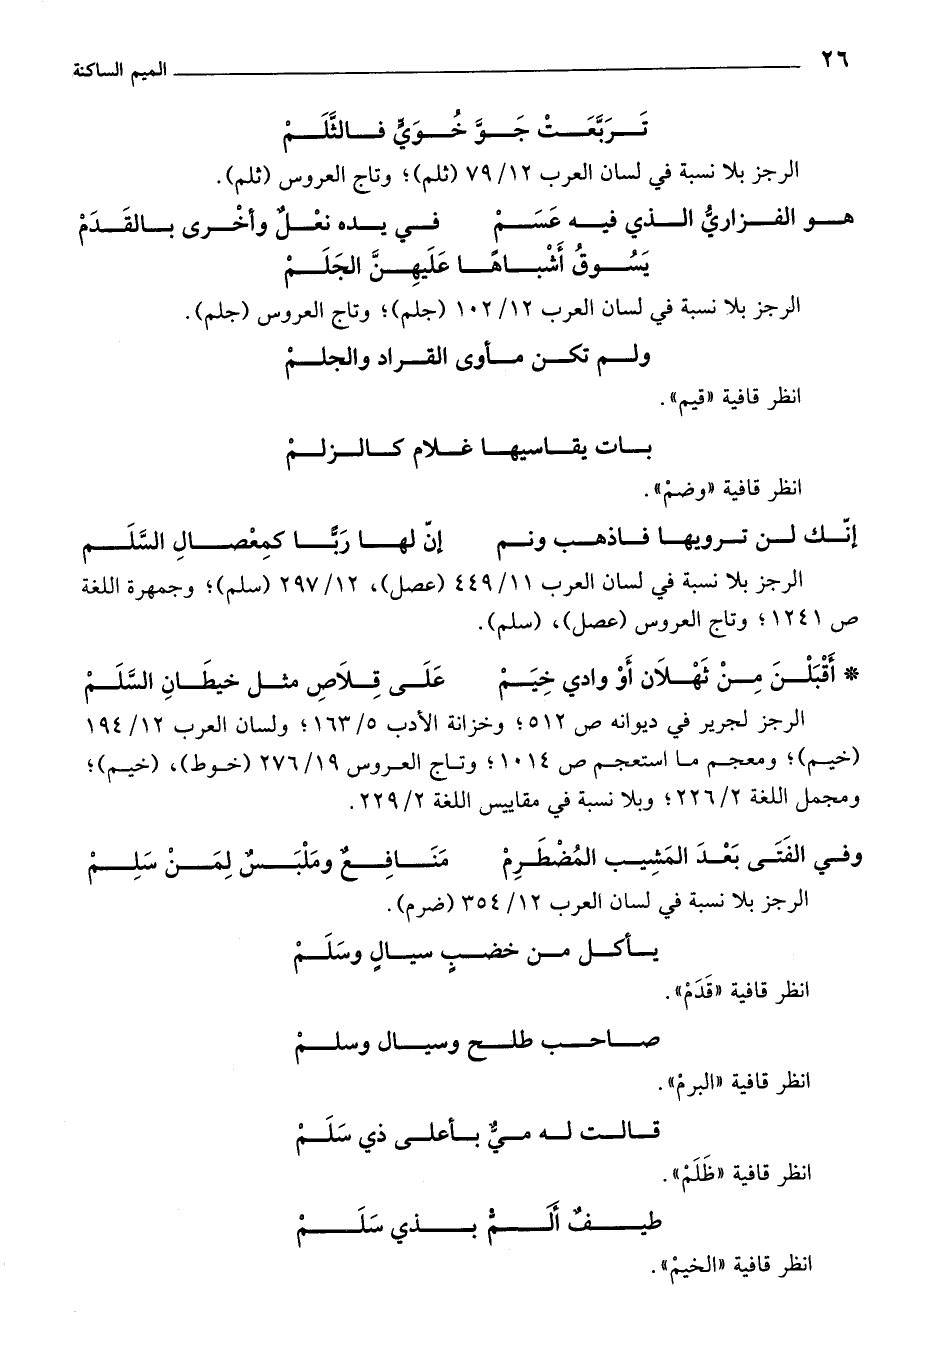 ٢٦ الميم الساكنة
تَرَبَّعَتْ جَوَّ خُوَيٍّ فالثَّلَمْ
الرجز بلا نسبة في لسان العرب ٧٩/١٢ (ثلم)؛ وتاج العروس (ثلم).
هو الفزاريُّ الذي فيه عَسَمْ في يده نعْلٌ وأخْرى بالقَدَمْ
يَسُوقُ أَشْباهًا عَلَيهِنَّ الجَلَمْ
الرجز بلا نسبة في لسان العرب ١٠٢/١٢ (جلم)؛ وتاج العروس (جلم).
ولم تكن مأوى القراد والجلمْ
انظر قافية «قيم».
بات يقاسيها غلام كالزلمْ
انظر قافية «وضمْ».
إنّك لن ترويها فاذهب ونم إنّ لها رَبًّا كمِعْصالِ السَّلَم
الرجز بلا نسبة في لسان العرب ٤٤٩/١١ (عصل)، ٢٩٧/١٢ (سلم)؛ وجمهرة اللغة
ص ١٢٤١؛ وتاج العروس (عصل)، (سلم).
* أَقْبَلْنَ مِنْ ثَهْلَان أَوْ وادي خِيَمْ عَلَى قِلَاصٍ مثل خيطَانِ السَّلَمْ
الرجز لجرير في ديوانه ص ٥١٢؛ وخزانة الأدب ١٦٣/٥؛ ولسان العرب ١٩٤/١٢
(خيم)؛ ومعجم ما استعجم ص ١٠١٤؛ وتاج العروس ٢٧٦/١٩ (خوط)، (خيم)؛
ومجمل اللغة ٢٢٦/٢؛ وبلا نسبة في مقاييس اللغة ٢٢٩/٢.
وفي الفَتَى بَعْدَ المَشِيب المُضْطَرِمْ مَنَافِعٌ ومَلْبَسٌ لِمَنْ سَلِمْ
الرجز بلا نسبة في لسان العرب ٣٥٤/١٢ (ضرم).
يأكل من خضبٍ سيالٍ وسَلَمْ
انظر قافية «قَدَمْ».
صاحب طلح وسيال وسلمْ
انظر قافية «البرمْ».
قالت له ميٌّ بأعلى ذي سَلَمْ
انظر قافية «ظَلَمْ».
طيفٌ أَلَمّْ بذي سَلَمْ
انظر قافية «الخيمْ».